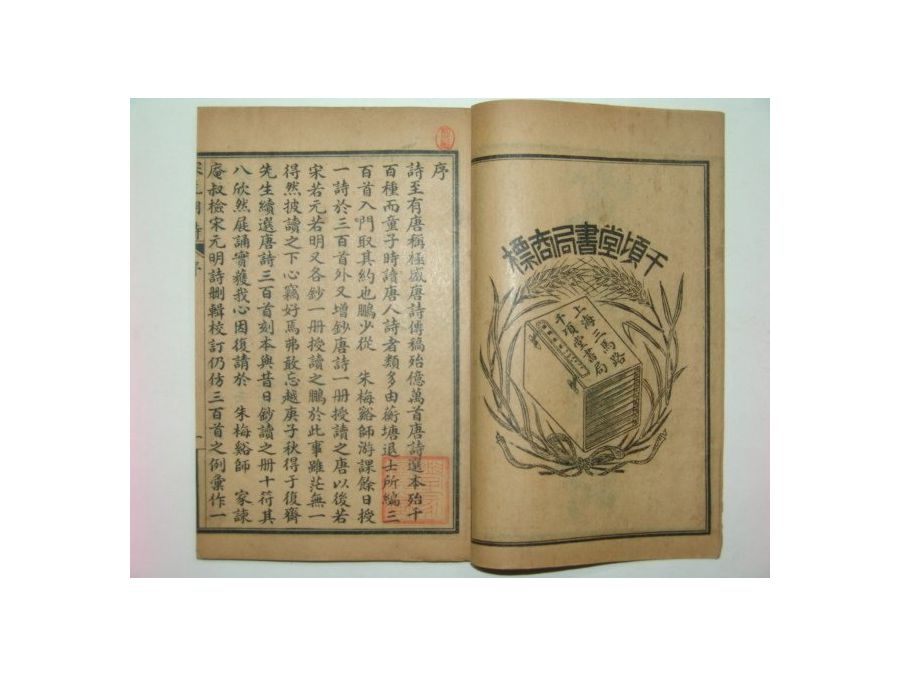 千頃堂書局商標
上海三馬路
千頃堂書局
序
詩至有唐稱極盛唐詩傳稿殆億萬首唐詩選本殆千
百種而童子時讀唐人詩者類多由蘅塘退士所編三
百首入門取其約也鵬少從 朱梅谿師游課餘日授
一詩於三百首外又增鈔唐詩一册授讀之唐以後若
宋若元若明又各鈔一册授讀之鵬於此事雖茫無一
得然披讀之下心竊好焉弗敢忘越庚子秋得于復齋
先生續選唐詩三百首刻本與昔日鈔讀之册十符其
八欣然展誦實獲我心因復請於 朱梅谿師 家諫
庵叔檢宋元明詩刪輯校訂仍仿三百首之例彙作一